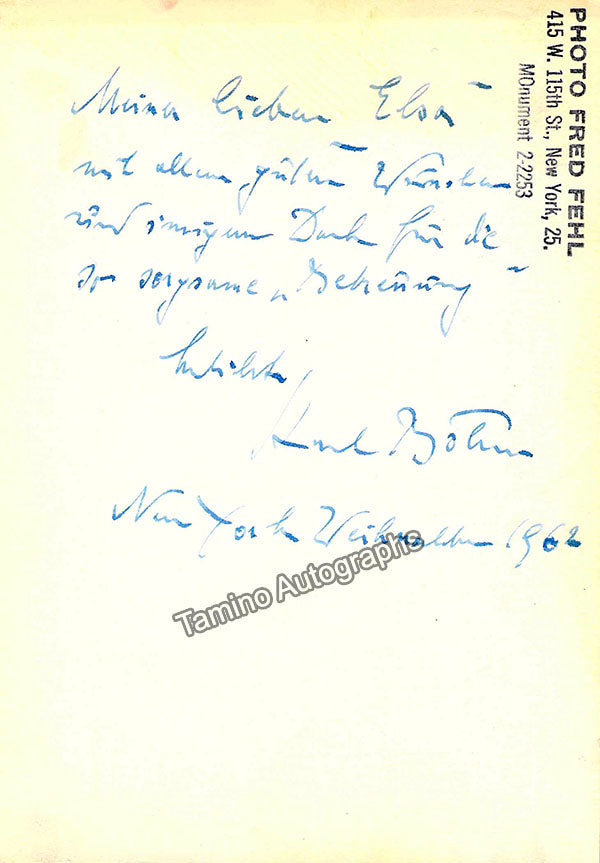 PHOTO FRED FEHL
415 W. 115th St., New York, 25.
MOnument 2-2253
Meiner lieben Elsa
mit allen guten Wünschen
und innigem Dank für die
so sorgsame „Betreuung“
herzlichst
Karl Böhm
New York Weihnachten 1962
Tamino Autographs